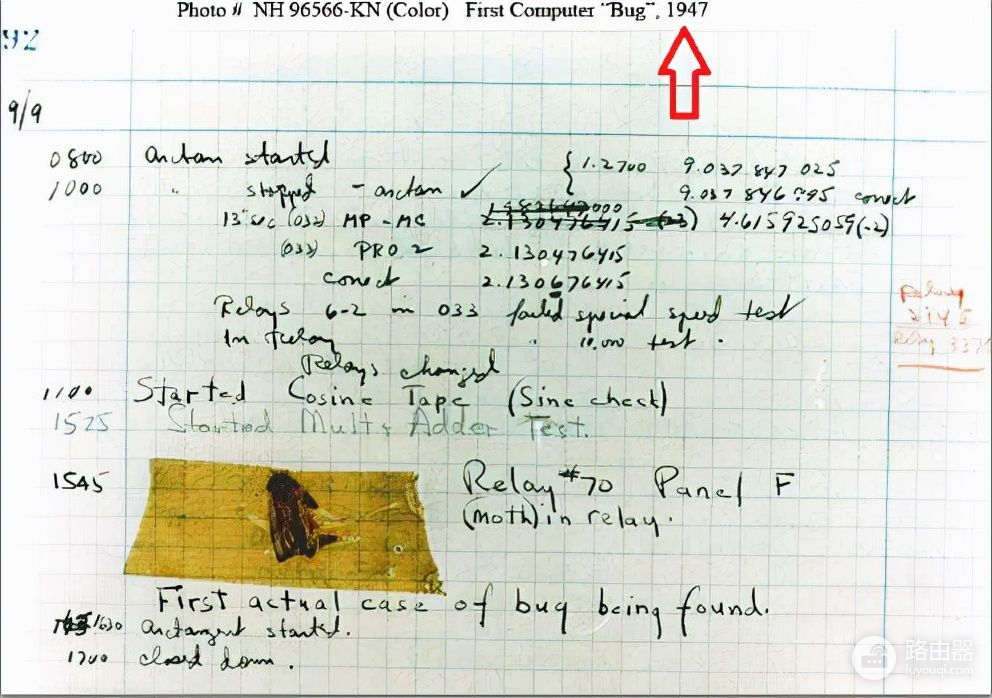 Photo # NH 96566-KN (Color) First Computer "Bug", 1947
92
9/9
0800 arctan started { 1.2700 9.037 847 025
1000 " stopped - arctan ✓ 9.037 846 995 conect
13"sec (032) MP - MC 2.130476415 4.615925059(-2)
(033) PRO 2 2.130476415
conect 2.130676415
Relays 6-2 in 033 failed special speed test
In relay " 10.000 test .
Relay
2145
Relay 337
Relays changed
1100 Started Cosine Tape (Sine check)
1525 Started Mult + Adder Test.
1545 Relay #70 Panel F
(moth) in relay.
First actual case of bug being found.
1630 arctangent started.
1700 closed down .
路由器
luyouqi.com